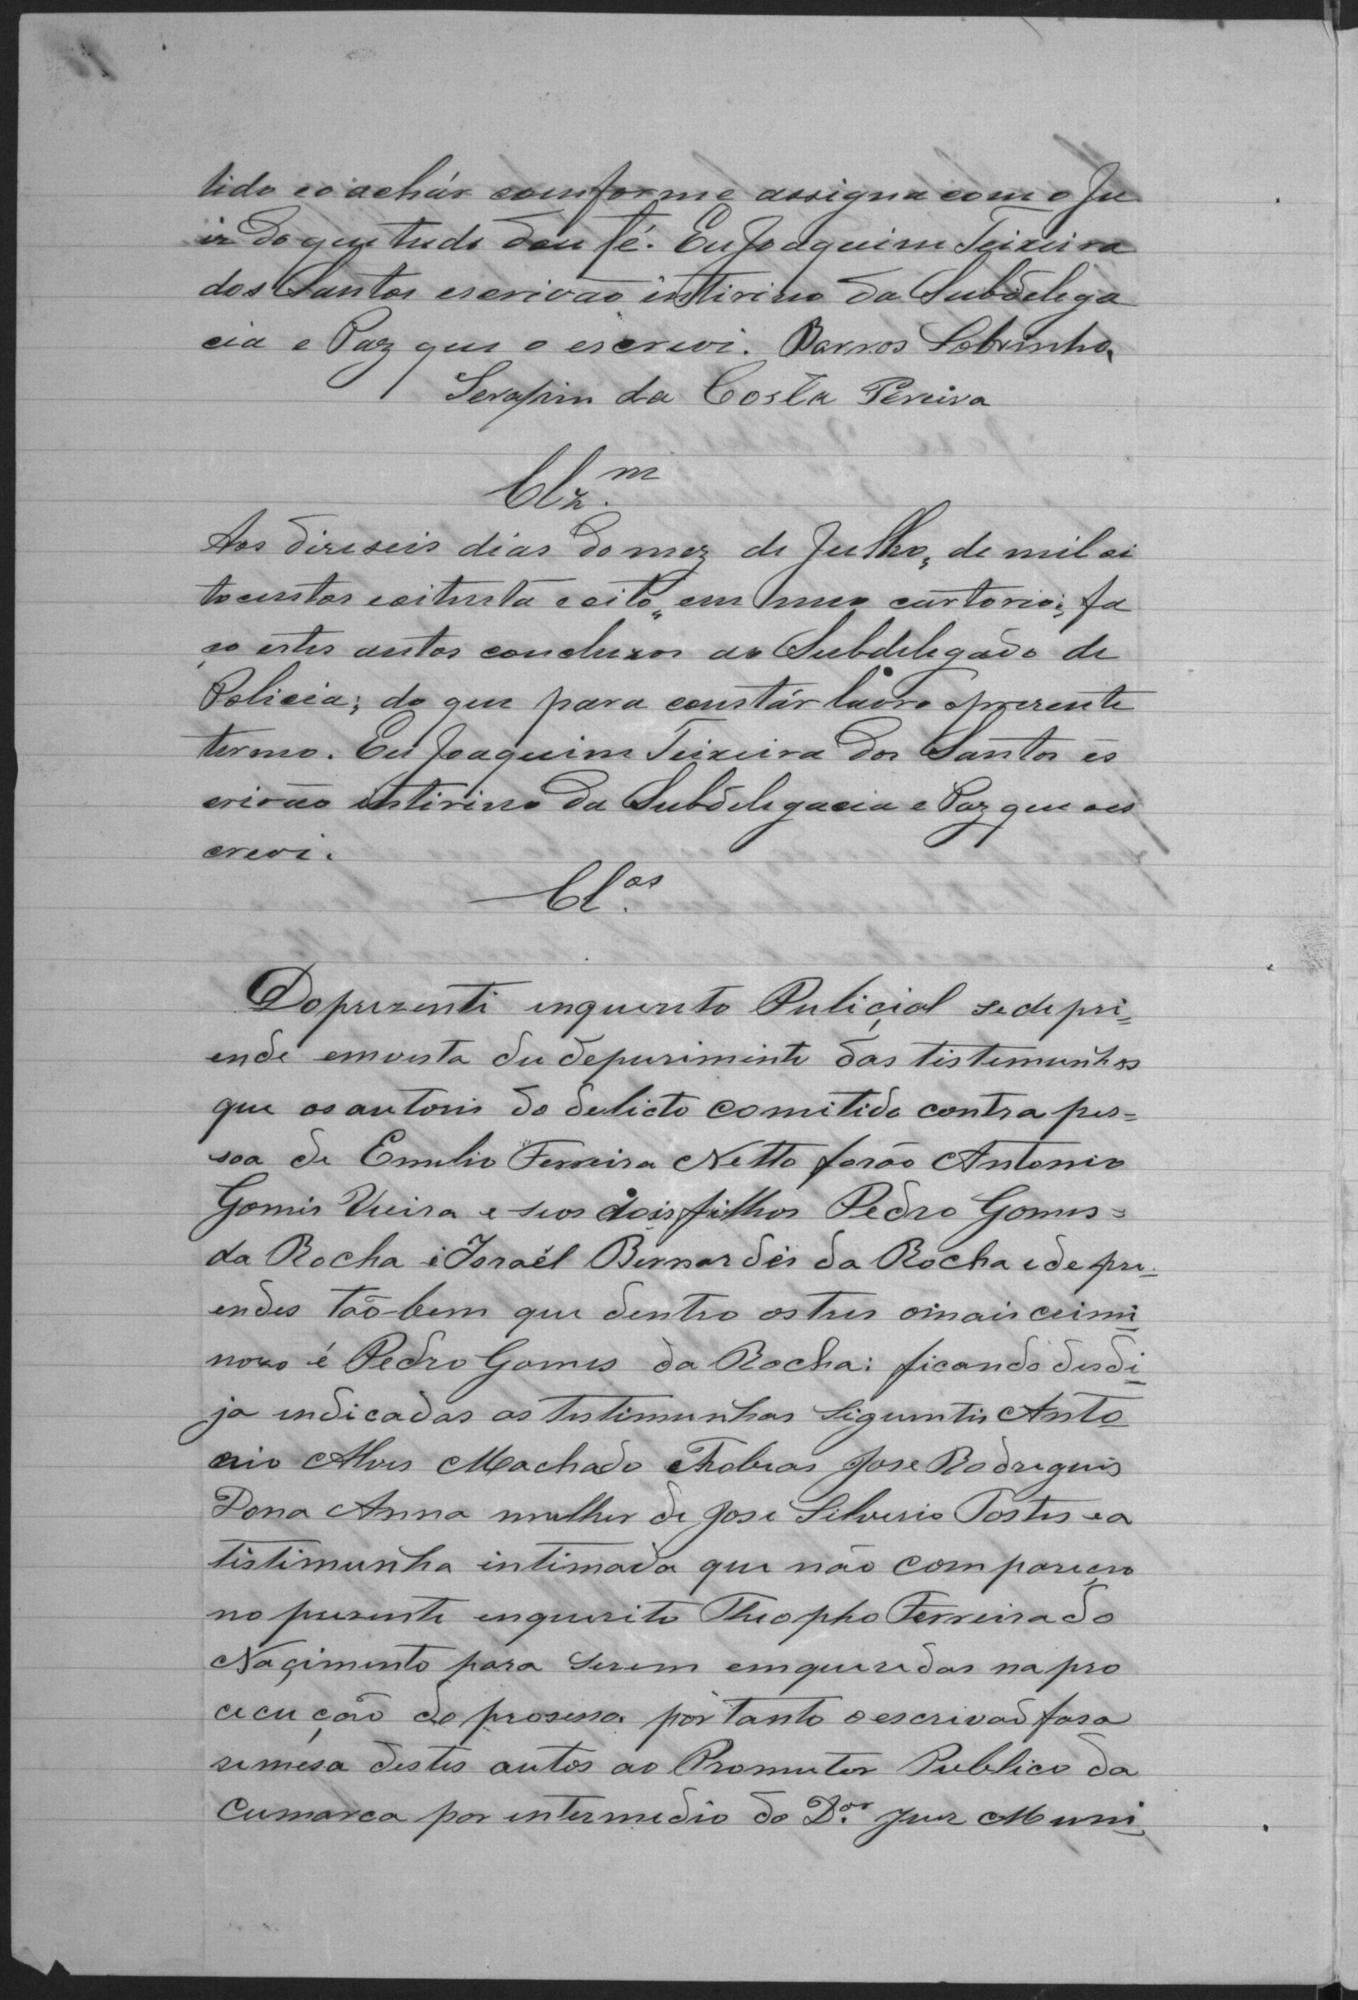 tido e o achár comforme assigna com o Ju
iz do que tudo dou fé. Eu Joaquim Teixeira
dos Santos escrivão intirino da Subdelega
cia e Paz que o escrevi. Barros Sobrinho,
Serafim da Costa Pereira
Clz.m
Aos dizeseis dias do mez de Julho, de mil oi
tocentos e oitenta e oito, em meu cartorio; fa
ço estes autos concluzos ao Subdelegado de
Policia; do que para constár lavro o prezente
termo. Eu Joaquim Teixeira dos Santos es
crivão intirino da Subdelegacia e Paz que o es
crevi.
Cl.os
Do prezenti enquerito Puliçial se depri=
ende em vista du depurimento das tistemunhas
que os autoris do delicto comitido contra pes=
soa de Emilio Ferreira Netto forão Antonio
Gomis Vieira e seos dois filhos Pedro Gomes=
da Rocha i Israél Bernardés da Rocha e depri-
endes tão bem que dentro os tres o mais crimi
nozo é Pedro Gomes da Rocha: ficando desdi
ja indicadas as tistimunhas siguintis Anto
nio Alves Machado Thobias Jose Rodriguis
Dona Anna mulher de Jose Silverio Tostes e a
tistimunha intimada que não compareceo
no prezente enquerito Theopho Ferreira do
Naçimento para serem emqueredas na pro
cecução do prosesso portanto o escrivão fasa
remesa destes autos ao Promutor Publico da
Cumarca por intermedio do D.or Juiz Muni